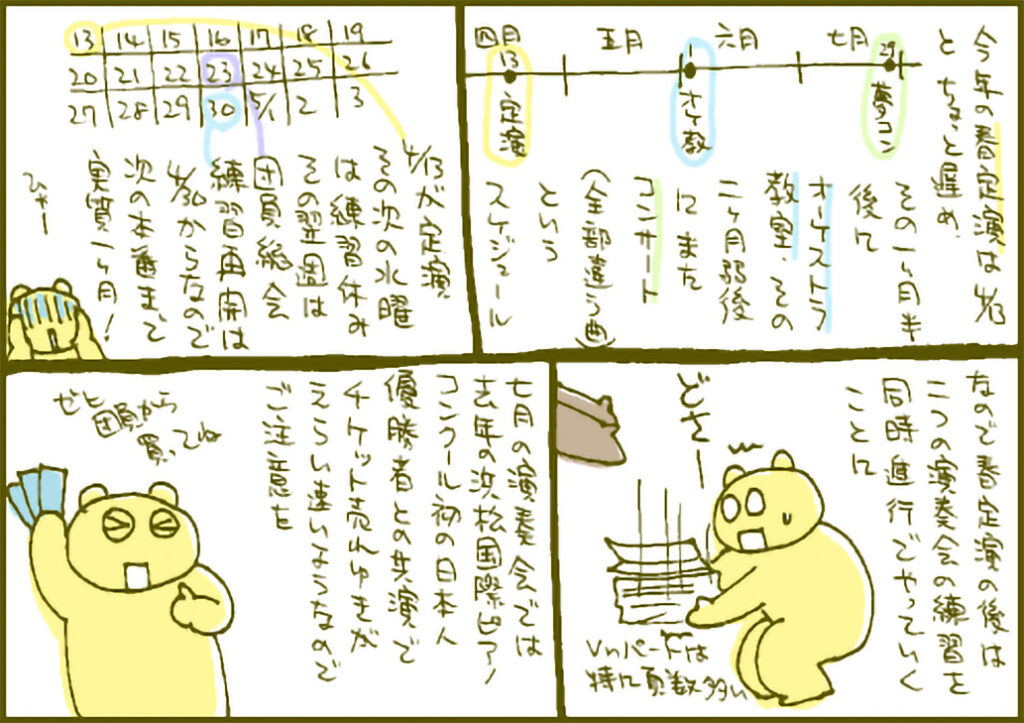 今年の春定演は4/13
とちょっと遅め、
その一ヶ月半
後に
オーケストラ
教室、その
二ヶ月弱後
にまた
コンサート
(全部違う曲)
という
スケジュール
四月
五月
六月
七月
13
定演
1
オケ教
29
夢コン
13 14 15 16 17 18 19
20 21 22 23 24 25 26
27 28 29 30 5/1 2 3
4/13が定演
その次の水曜
は練習休み
その翌週は
団員総会
練習再開は
4/30からなので
次の本番まで
実質一ヶ月!
ひゃー
なので春定演の後は
二つの演奏会の練習を
同時進行でやっていく
ことに
どさー
Vnパートは
特に頁数多い
七月の演奏会では
去年の浜松国際ピアノ
コンクール初の日本人
優勝者との共演で
チケット売れゆきが
えらい速いようなので
ご注意を
ゼヒ
団員から
買ってね